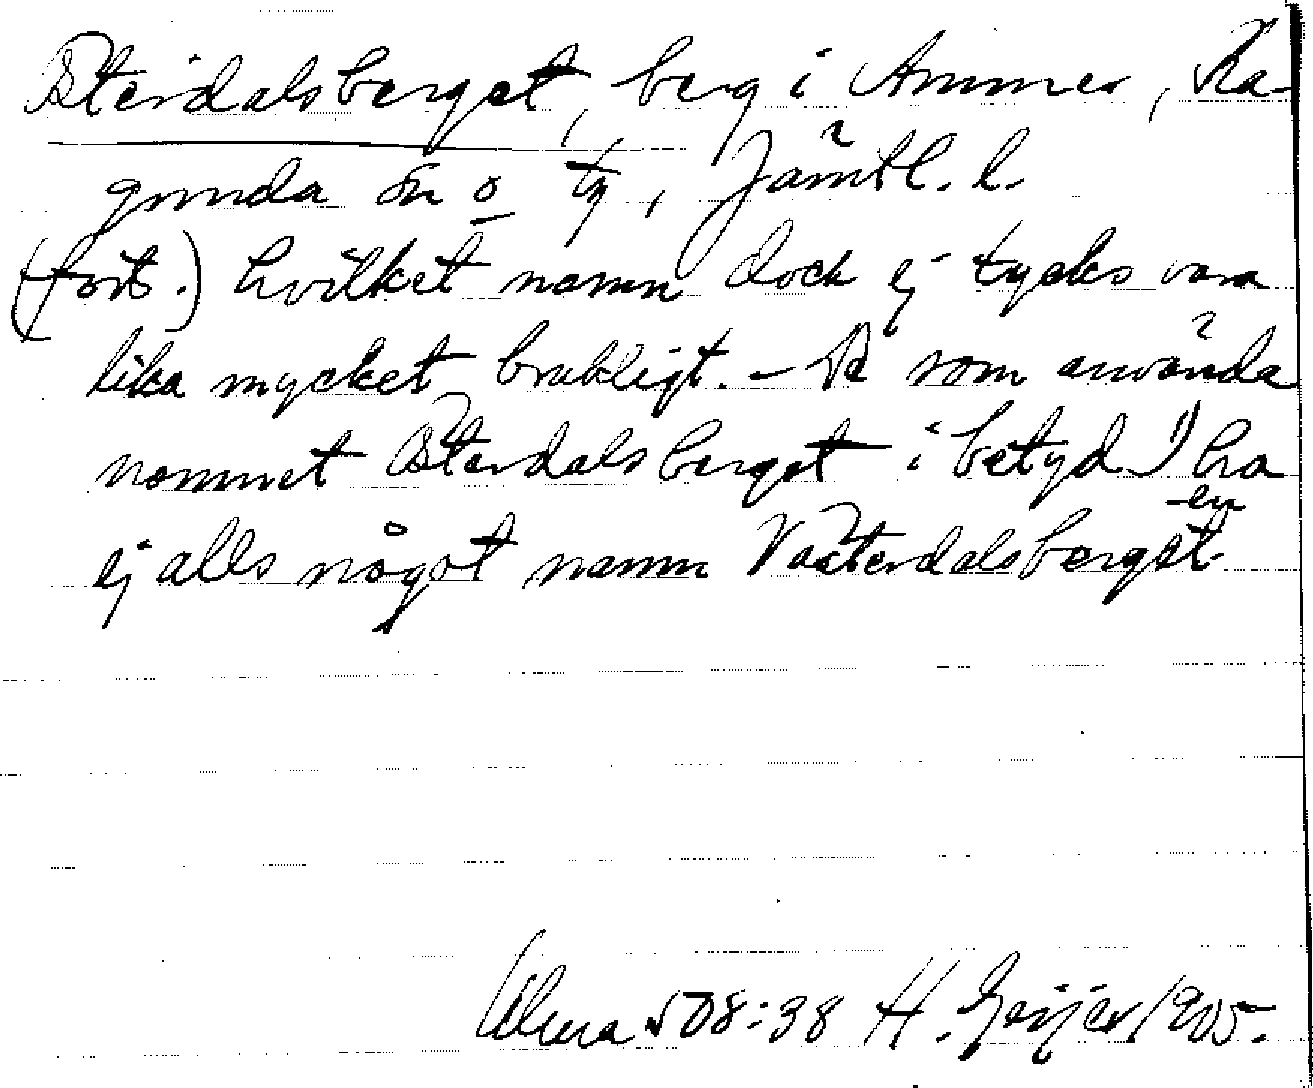 Österdalsberget, berg i Ammer, Ra-
gunda sn o tg, Jämtl. l.
(forts.) hvilket namn dock ej tycks vara
lika mycket brukligt. – De som använda
namnet Österdalsberget i betyd 1) ha
ej alls något namn Västerdalsberget -en
508:38 H. Geijer 1905.